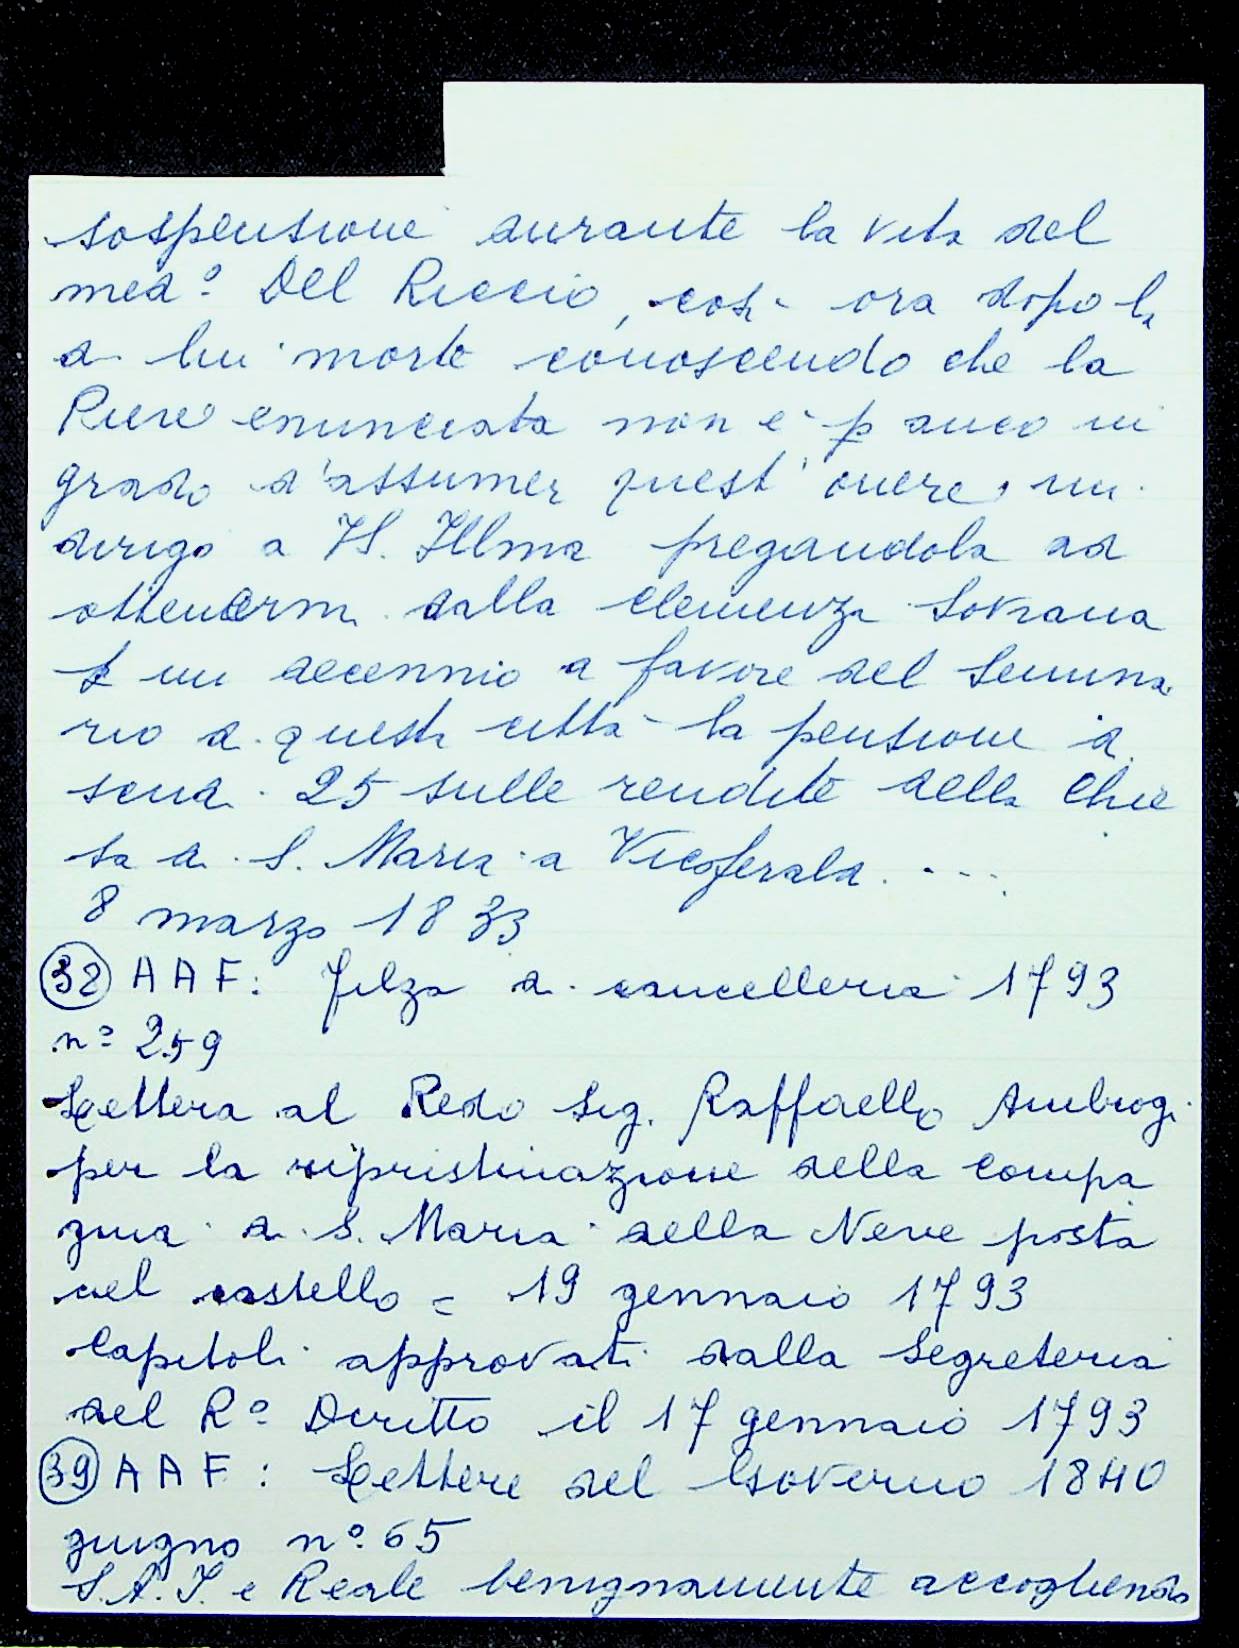 sospensione durante la vita del
med.º Del Riccio, così ora dopo la
di lui morte conoscendo che la
Pieve enunciata non è p anco in
grado d'assumer quest'onere, mi
dirigo a VS. Illma pregandola ad
ottenermi dalla clemenza Sovrana
p un decennio a favore del Semina
rio di questa città la pensione di
scudi 25 sulle rendite della Chie
sa di S. Maria a Vicoferaldi. ....
8 marzo 1833
(38) A A F: Filza di cancelleria 1793
nº 259
Lettera al Redo Sig. Raffaello Ambrogi
per la ripristinazione della compa
gnia di S. Maria della Neve posta
nel castello = 19 gennaio 1793
Capitoli approvati dalla Segreteria
del Rº Diritto il 17 gennaio 1793
(39) A A F: Lettere del Governo 1840
giugno nº 65
S.A.I. e Reale benignamente accogliendo